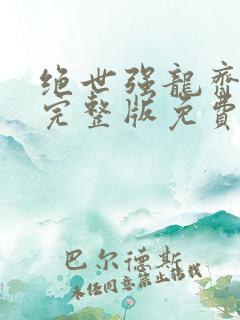 绝世强龍齊
完整版免費
巴尔德斯
未经同意禁止转载